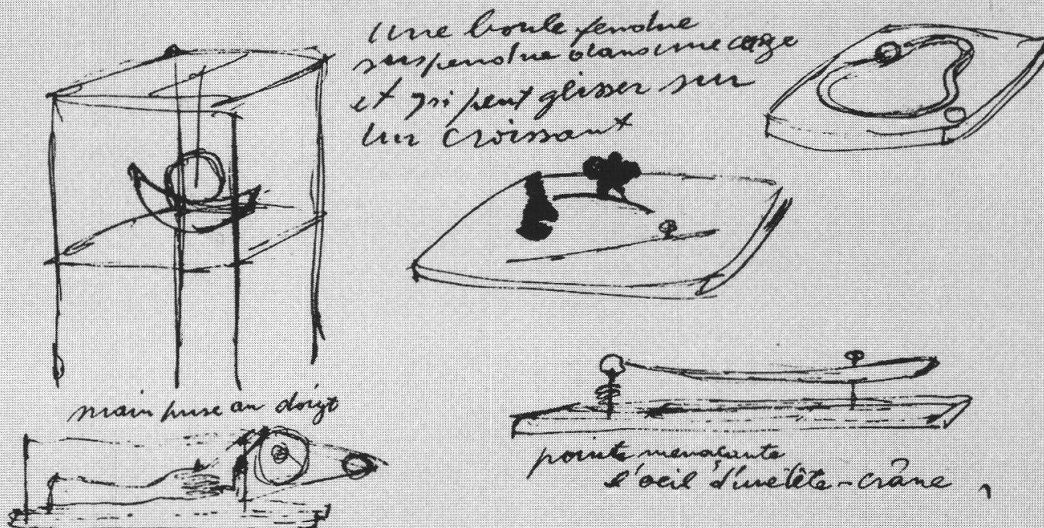 Une boule fendue
suspendue dans une cage
et qui peut glisser sur
un croissant
main prise au doigt
pointe menaçante
l'oeil d'une tête-crâne